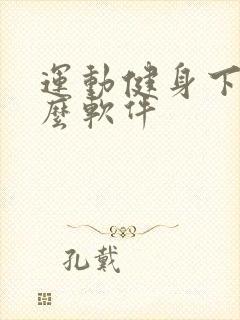 運動健身下
麼軟件
孔戴